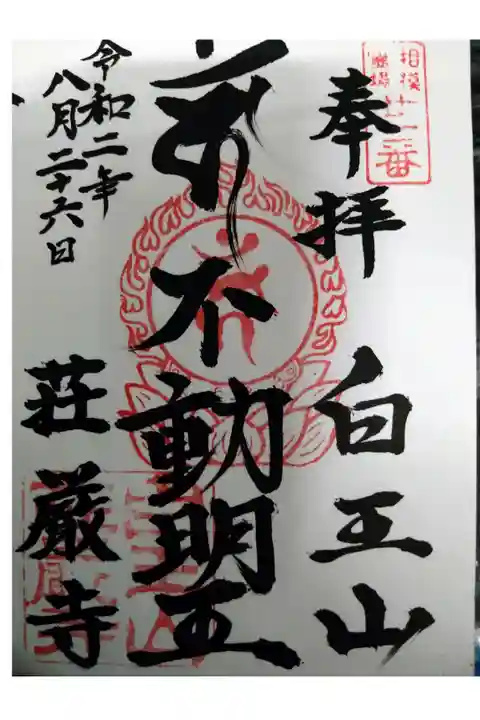 相模
霊場
廿二番
奉拝
白王山
不動明王
荘厳寺
令和二年
八月二十六日